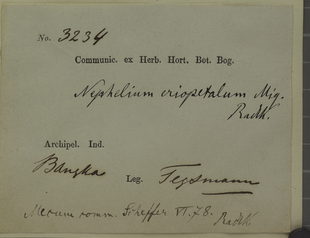 No. 3234
Communic. ex Herb. Hort. Bot. Bog.
Nephelium eriopetalum Miq.
Radlk.
Archipel. Ind.
Bangka
Leg. Teysmann
Mecum comm. Scheffer VI.78. Radlk